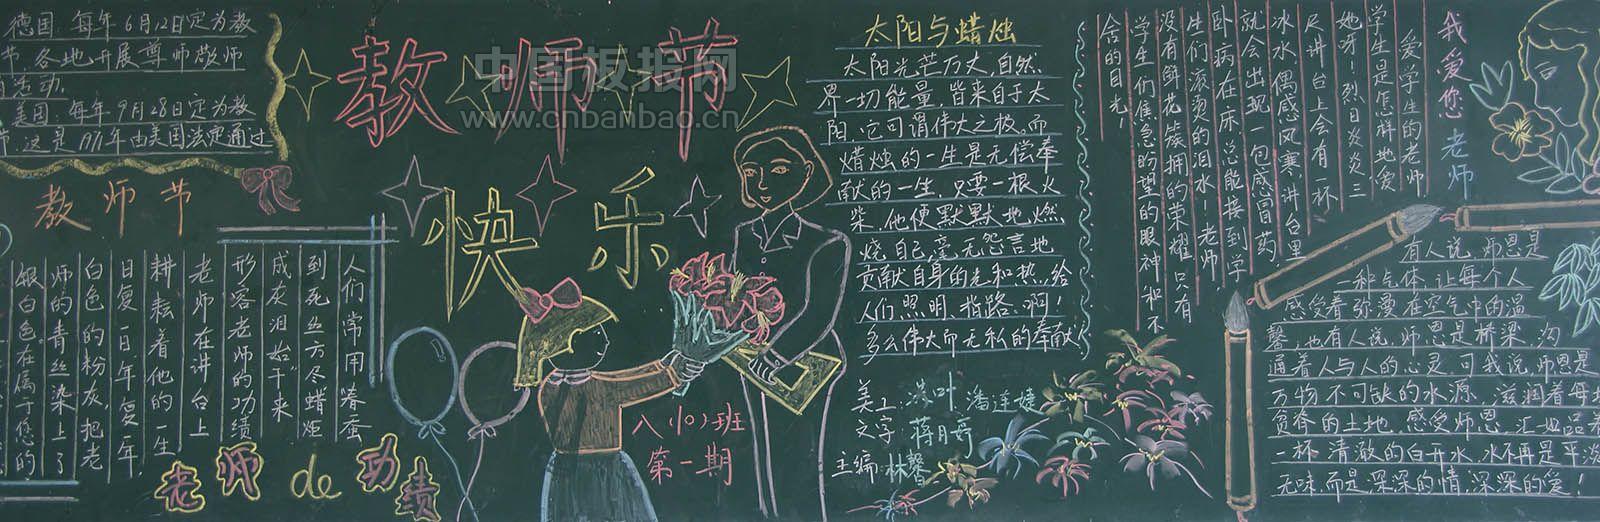 德国:每年6月12日定为教
节.各地开展尊师敬师
活动.
美国:每年9月28日定为教
节.这是1971年由美国法定通过
教师节
教师节
快乐
中国板报网
www.cnbanbao.cn
人们常用"春蚕
到死丝方尽蜡炬
成灰泪始干"来
形容老师的功绩
老师在讲台上
耕耘着他的一生
日复一日,年复一年,
白色的粉灰,把老
师的青丝染上了
银白色.在属于您的
老师de功绩
八(10)班
第一期
太阳与蜡烛
太阳光芒万丈,自然
界一切能量,皆来自于太
阳.它可谓伟大之极.而
蜡烛的一生是无偿奉
献的一生.只要一根火
柴,他便默默地燃
烧自己,毫无怨言地
贡献自身的光和热,给
人们照明,指路.啊!
多么伟大而无私的奉献!
美工:洪叶 潘连婕
文字:蒋月婷
主编:林馨
我爱您老师
爱学生的老师
学生是怎样地爱
她呀!烈日炎炎三
尺讲台上会有一杯
冰水,偶感风寒,讲台里
就会出现一包感冒药
卧病在床,总能接到学
生们滚烫的泪水!老师
没有鲜花簇拥的荣耀,只有
学生们焦急盼望的眼神和不
舍的目光!
有人说,师恩是
一种气体,让每个人
感受着弥漫在空气中的温
馨;也有人说,师恩是桥梁,沟
通着人与人的心灵.可我说,师恩是
万物不可缺的水源,滋润着每块
贫瘠的土地.感受师恩,汇地品着
一杯清澈的白开水,水不再是平淡
无味,而是深深的情,深深的爱!